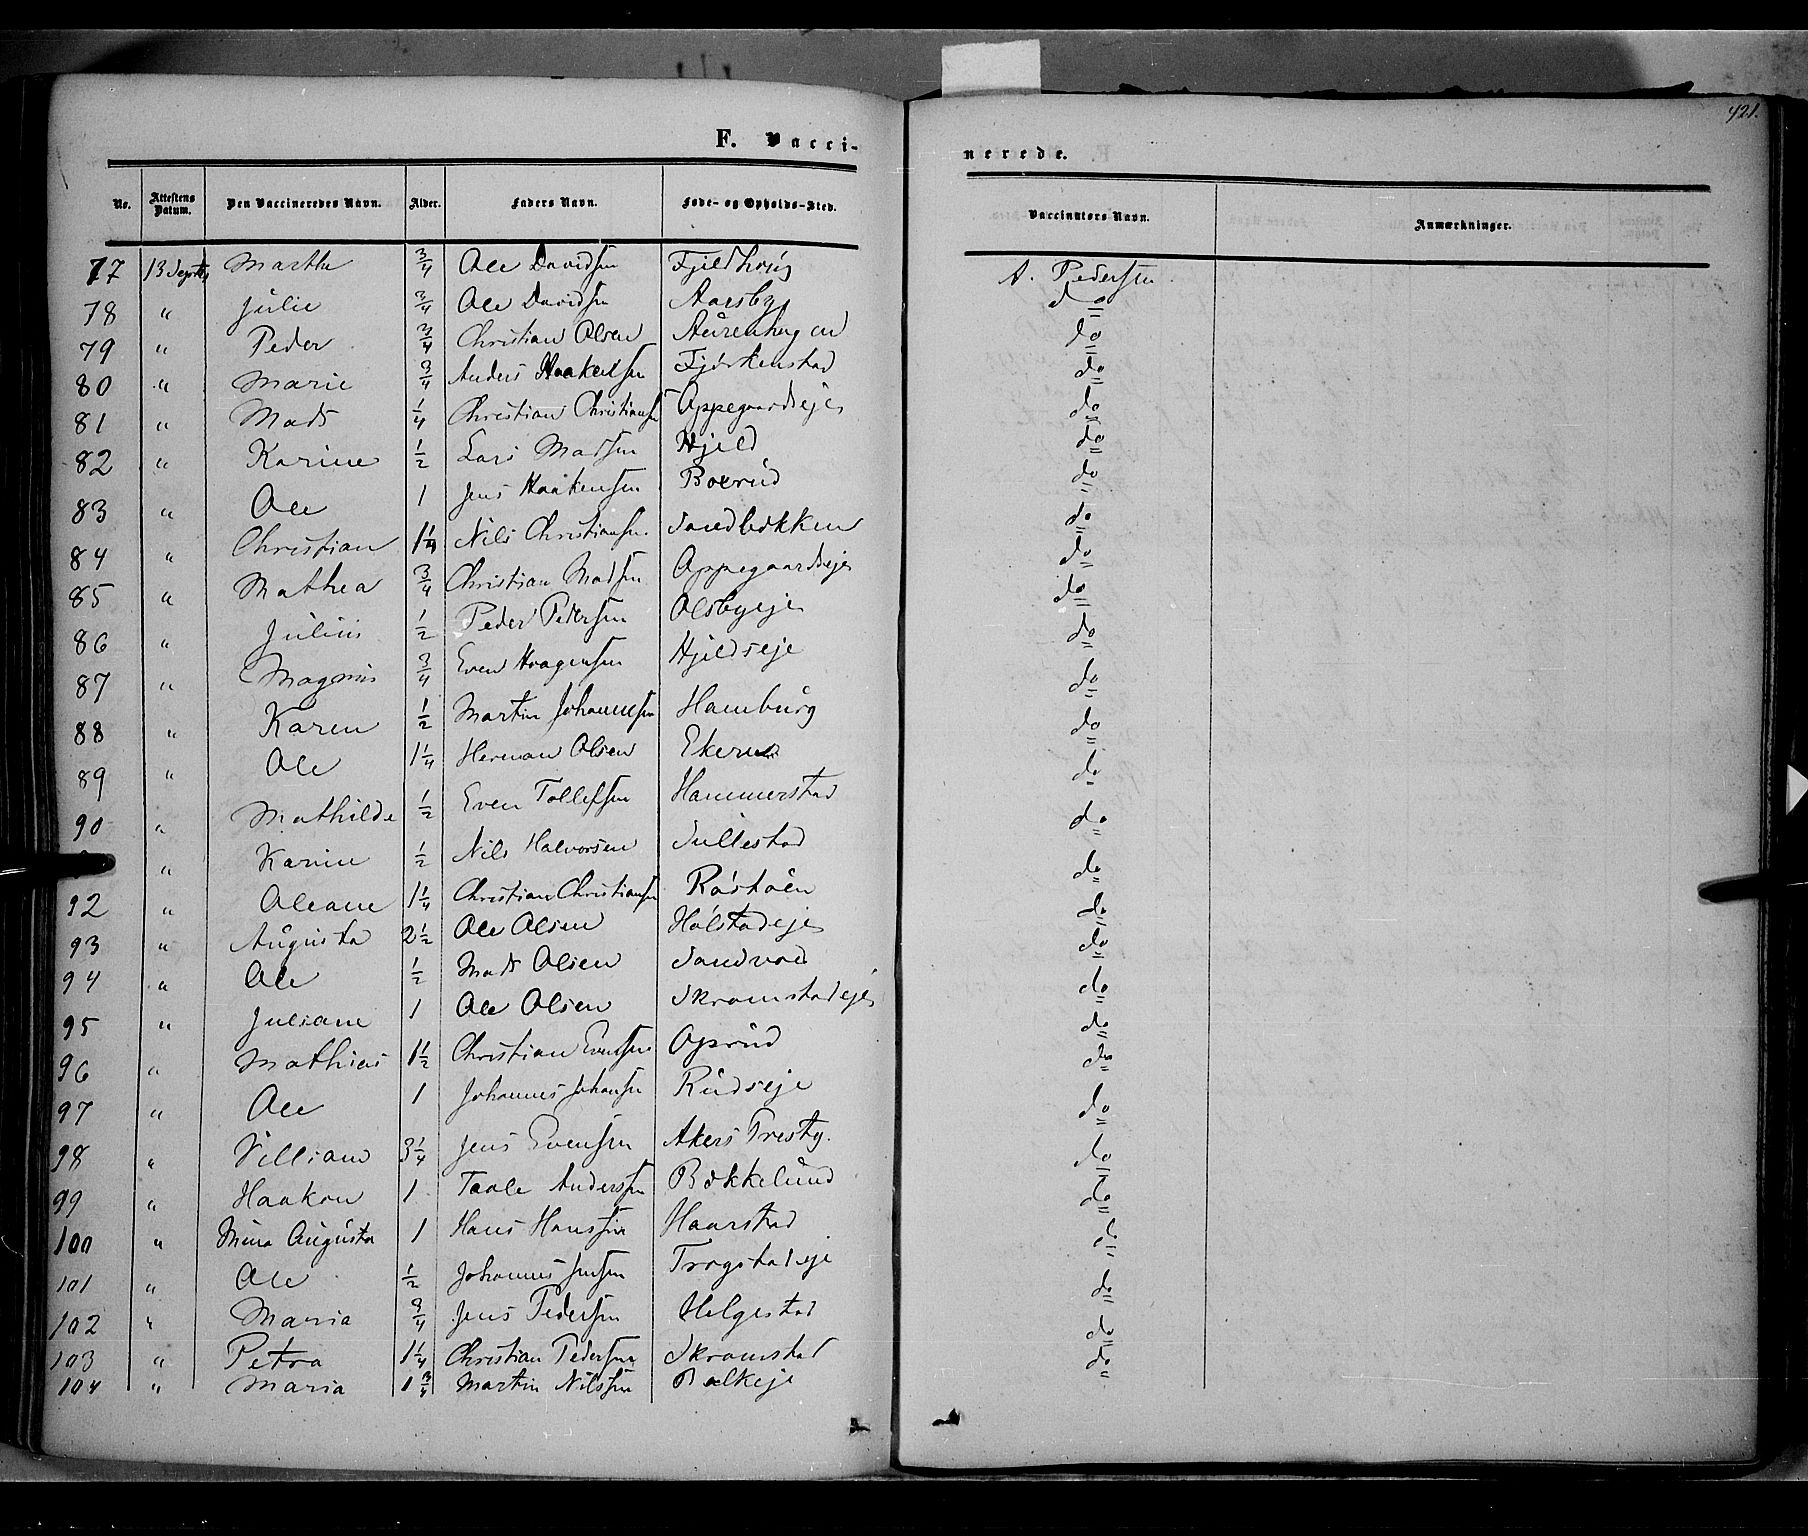 421.
F. Vacci-
nerede.
No. | Attestens Datum. | Den Vaccineredes Navn. | Alder. | Faders Navn. | Føde- og Opholds-Sted. | Vaccinators Navn. | Anmærkninger.
77 | 13 Septbr | Marthe | 3/4 | Ole Davidsen | Fjeldhoug | A. Pedersen
78 | " | Julie | 3/4 | Ole Davidsen | Aarsby | do
79 | " | Peder | 3/4 | Christian Olsen | Aurenhagen | do
80 | " | Marie | 3/4 | Anders Haakensen | Fjørkenstad | do
81 | " | Mads | 1/4 | Christian Christiansen | Oppegaardseje | do
82 | " | Karine | 1/2 | Lars Madsen | Hjeld | do
83 | " | Ole | 1 | Jens Haakensen | Boerud | do
84 | " | Christian | 1 1/4 | Nils Christiansen | Sandbekken | do
85 | " | Mathea | 3/4 | Christian Madsen | Oppegaardseje | do
86 | " | Julius | 1/2 | Peder Pedersen | Olsbyeje | do
87 | " | Magnus | 3/4 | Even Haagensen | Hjeldseje | do
88 | " | Karen | 1/2 | Martin Johannesen | Hamburg | do
89 | " | Ole | 1 1/4 | Herman Olsen | Ekerud | do
90 | " | Mathilde | 1/2 | Even Tollefsen | Hammerstad | do
" | Karine | 1/2 | Nils Halvorsen | Jullestad | do
92 | " | Oleane | 1 1/4 | Christian Christiansen | Røstøen | do
93 | " | Augusta | 2 1/2 | Ole Olsen | Holstadeje | do
94 | " | Ole | 1/2 | Mads Olsen | Sandvold | do
95 | " | Juliane | 1 | Ole Olsen | Skramstadeje | do
96 | " | Mathias | 1 1/2 | Christian Evensen | Oprud | do
97 | " | Ole | 1 | Johannes Johansen | Rudseje | do
98 | " | Villiam | 3 1/4 | Jens Evensen | Akers Prestg. | do
99 | " | Haakon | 1 | Taale Andersen | Bekkelund | do
100 | " | Mina Augusta | 1 | Hans Hanssen | Haarstad | do
101 | " | Ole | 1/2 | Johannes Jensen | Trogstadeje | do
102 | " | Maria | 3/4 | Jens Pedersen | Helgestad | do
103 | " | Petra | 1 1/4 | Christian Pedersen | Skramstad | do
104 | " | Maria | 1 3/4 | Martin Nilssen | Balkeje | do